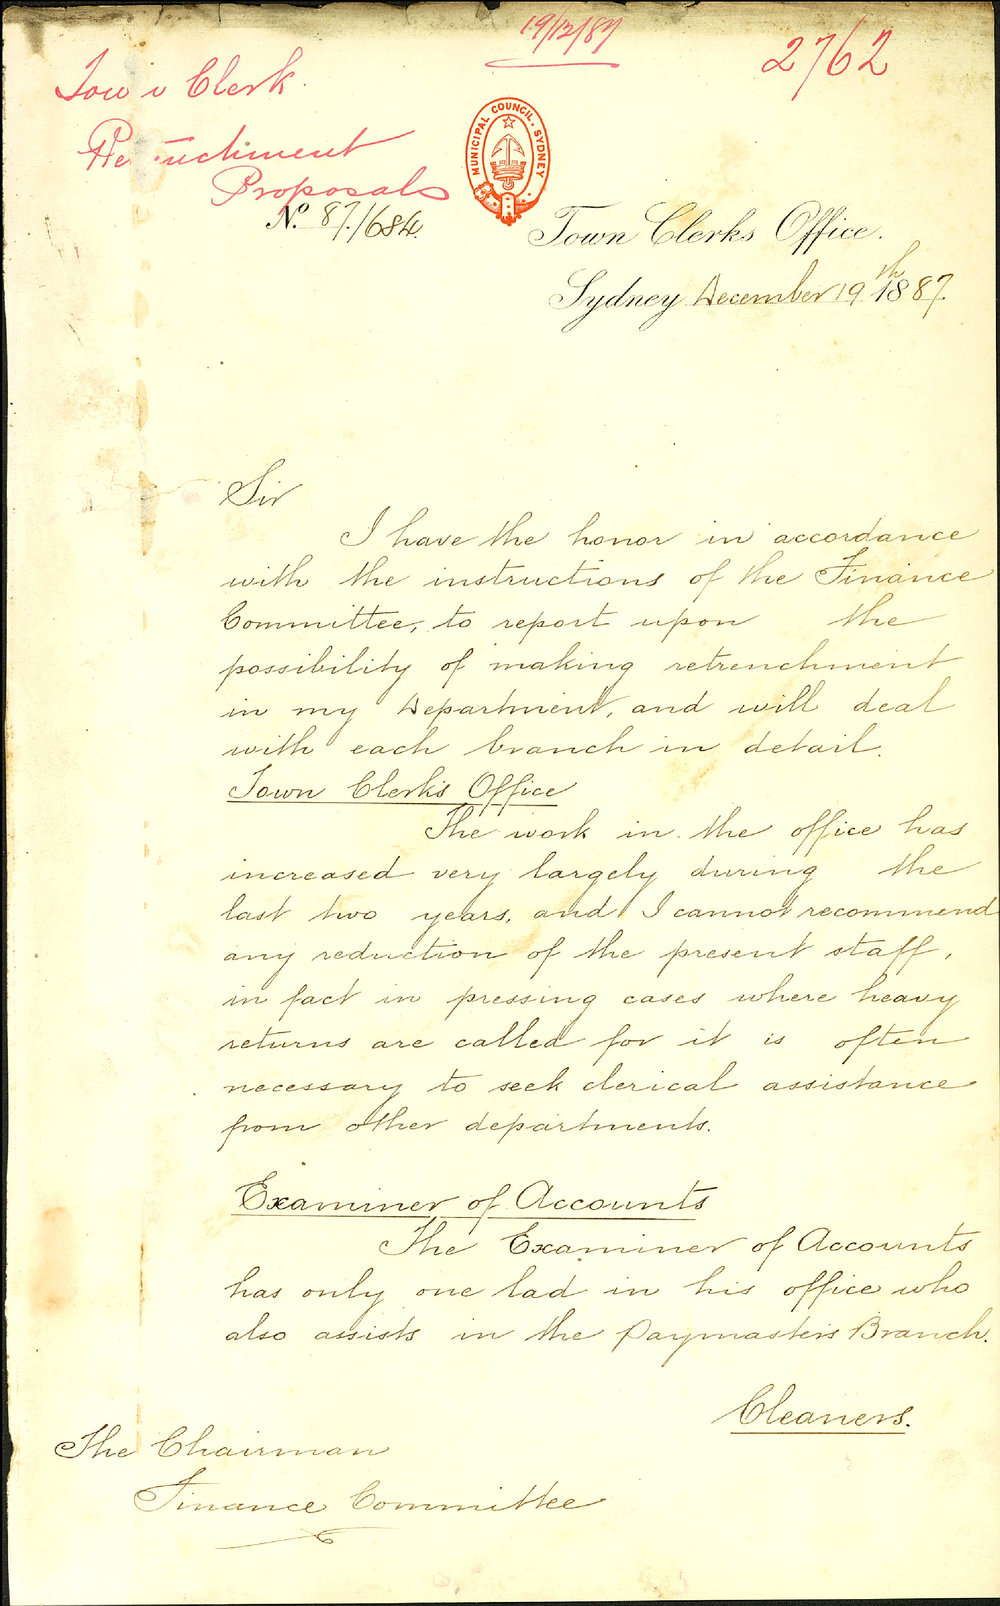 19/12/87
2762
Town Clerk
Retrenchment
Proposals
MUNICIPAL COUNCIL. SYDNEY
No. 87/684.
Town Clerks Office.
Sydney December 19th 1887.
Sir
I have the honor in accordance
with the instructions of the Finance
Committee, to report upon the
possibility of making retrenchment
in my Department, and will deal
with each branch in detail.
Town Clerk's Office
The work in the office has
increased very largely during the
last two years, and I cannot recommend
any reduction of the present staff,
in fact in pressing cases where heavy
returns are called for it is often
necessary to seek clerical assistance
from other departments.
Examiner of Accounts
The Examiner of Accounts
has only one lad in his office who
also assists in the Paymasters Branch.
Cleaners.
The Chairman
Finance Committee